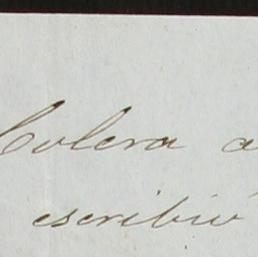 Colera a
escribió